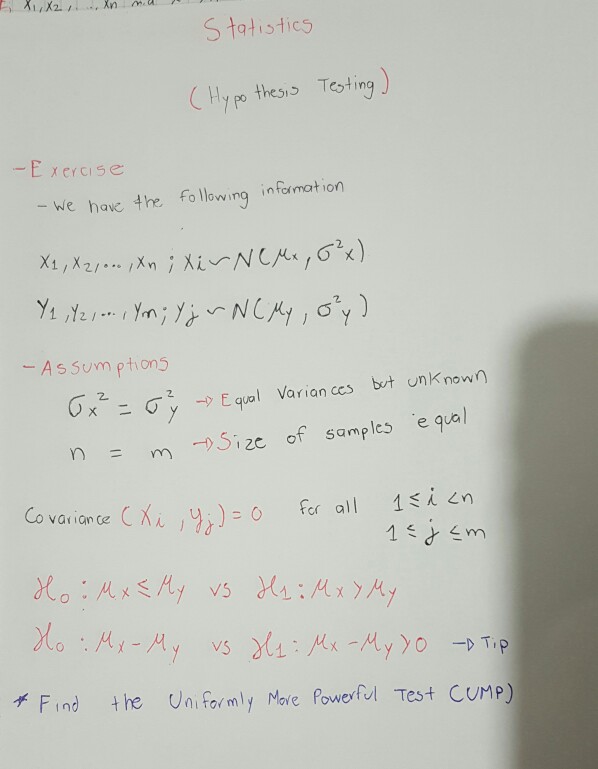 x1, x2, ..., xn
Statistics
(Hypothesis Testing)
- Exercise
- We have the following information
X1, X2, ..., Xn ; Xi ~ N(μx, σ²x)
Y1, Y2, ..., Ym ; Yj ~ N(μy, σ²y)
- Assumptions
σx² = σ²y → Equal Variances but unknown
n = m → Size of samples equal
Covariance (Xi, Yj) = 0 for all 1 ≤ i < n
1 ≤ j ≤ m
H0 : μx ≤ μy vs H1 : μx > μy
H0 : μx - μy vs H1 : μx - μy > 0 → Tip
* Find the Uniformly More Powerful Test (UMP)